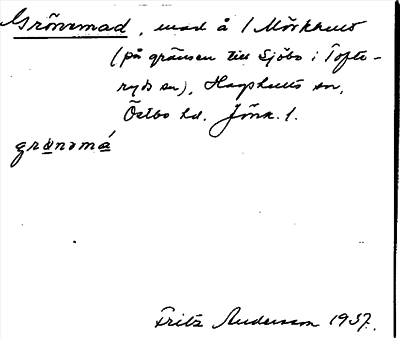 Grönsmad, mad å /Mörkhult
(på gränsen till Sjöbo i Tofte-
ryds sn), Hagshults sn,
Östbo hd. Jönk. l.
Fritz Andersson 1937.